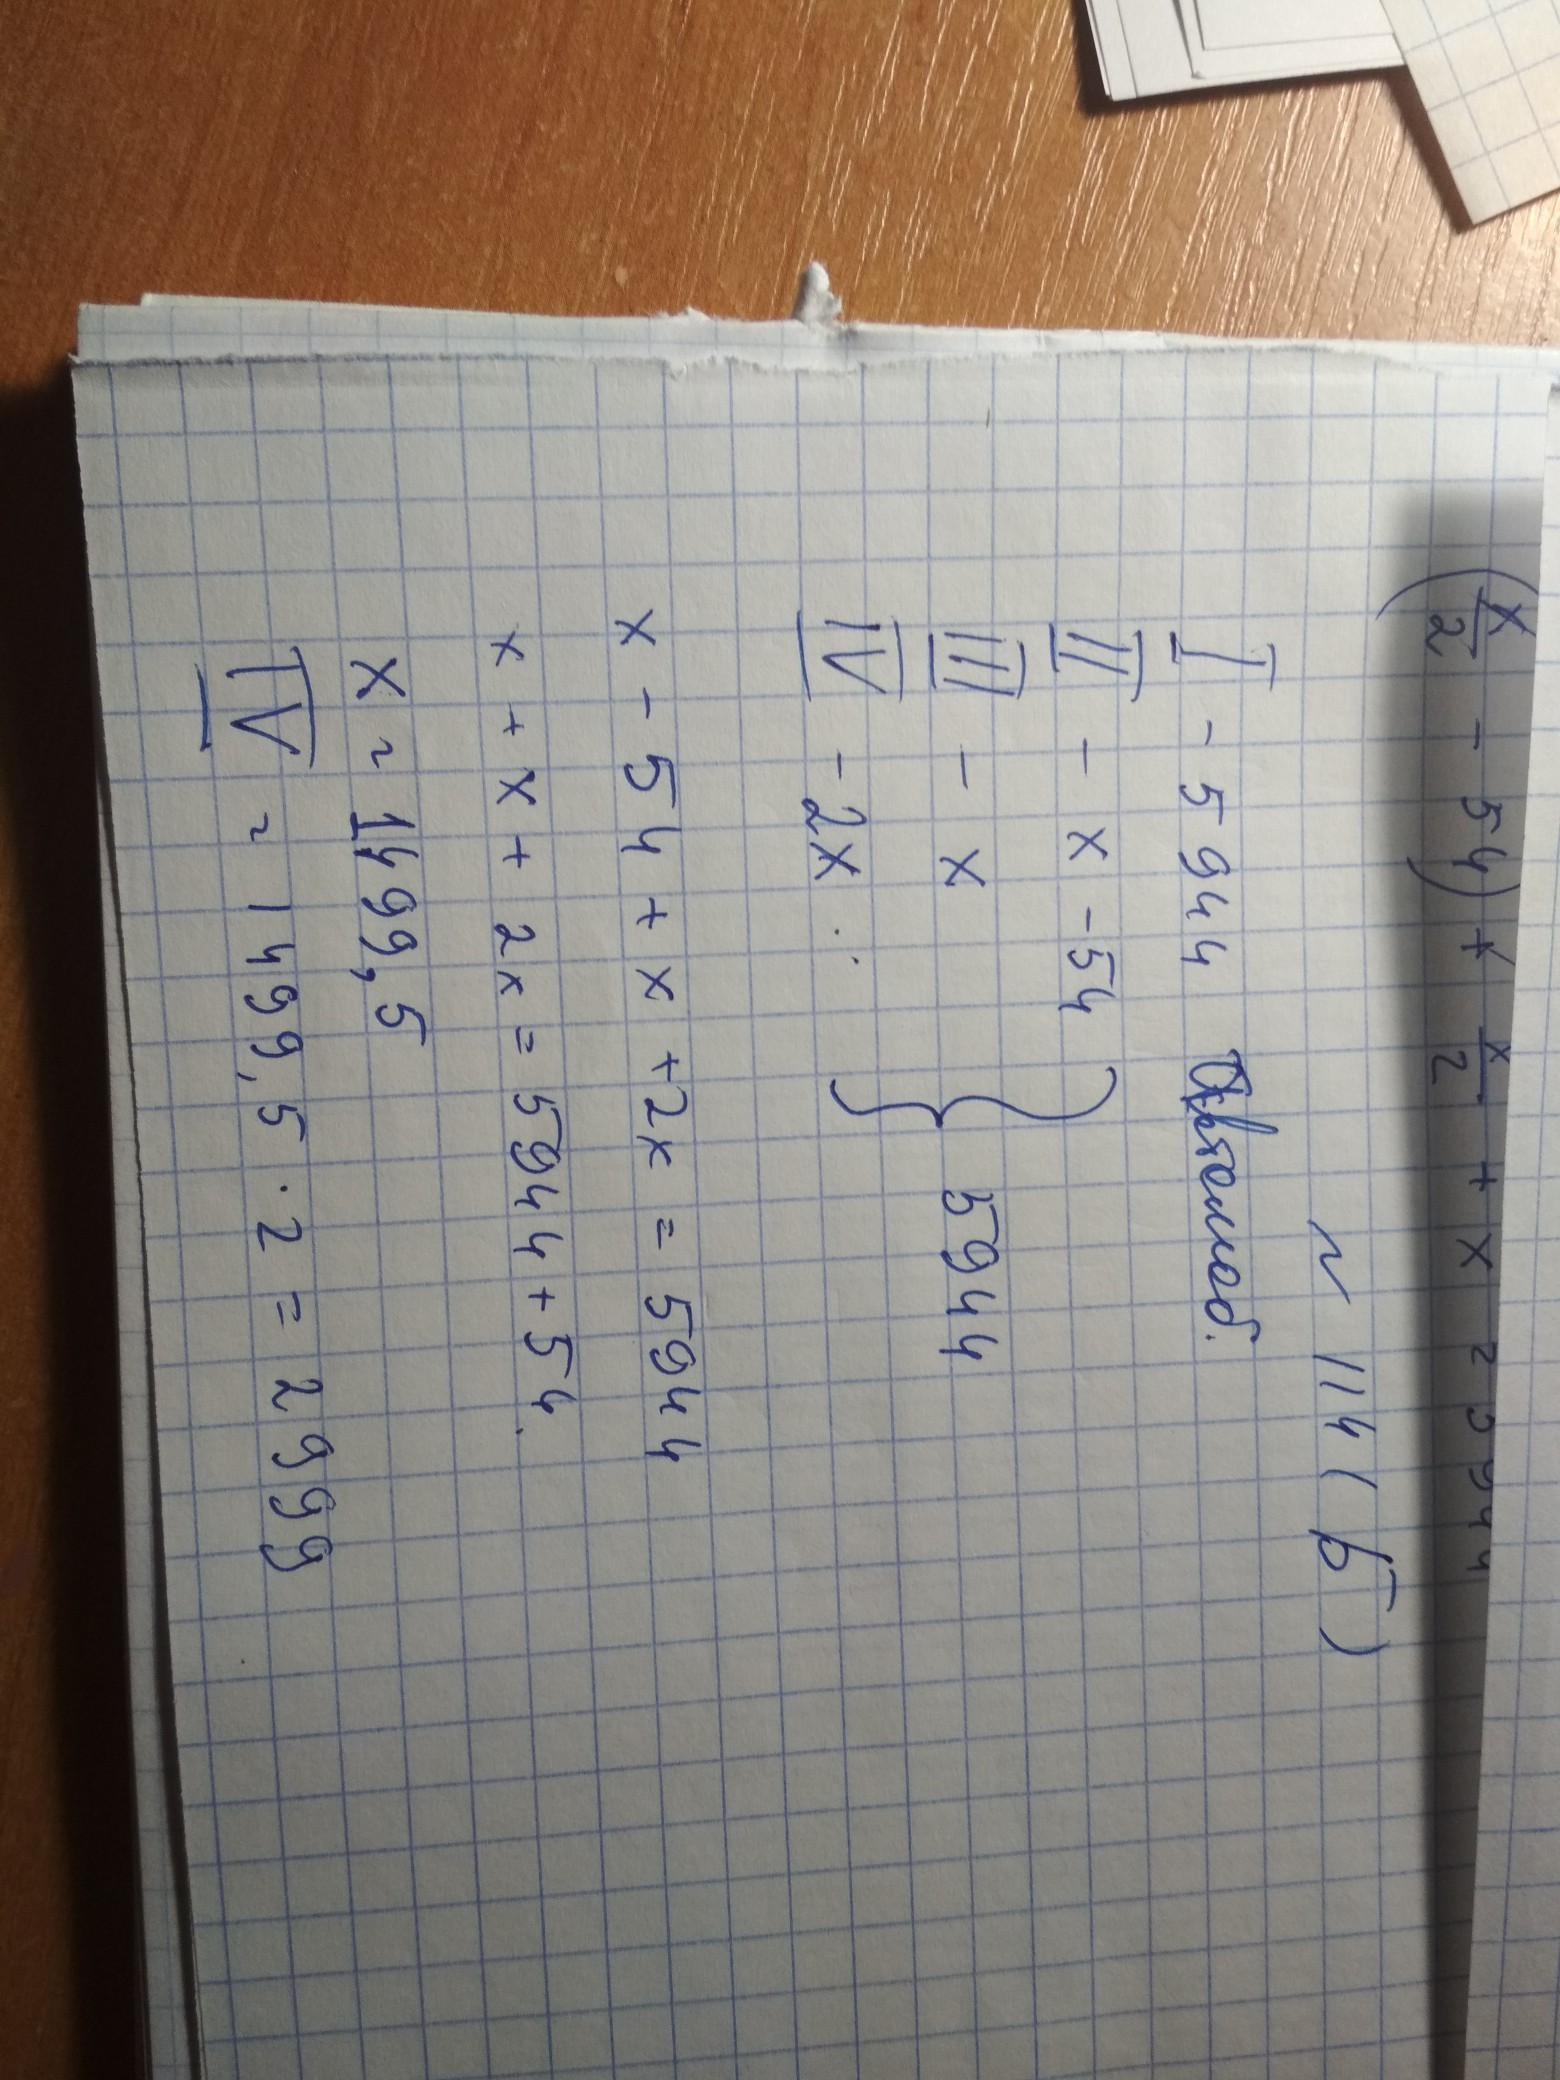 (x/2 - 54) + x/2 + x = 5944
~ 114 (б)
I - 5944 Автомоб.
II - x - 54
III - x } 5944
IV - 2x
x - 54 + x + 2x = 5944
x + x + 2x = 5944 + 54
x = 1499,5
IV = 1499,5 · 2 = 2999